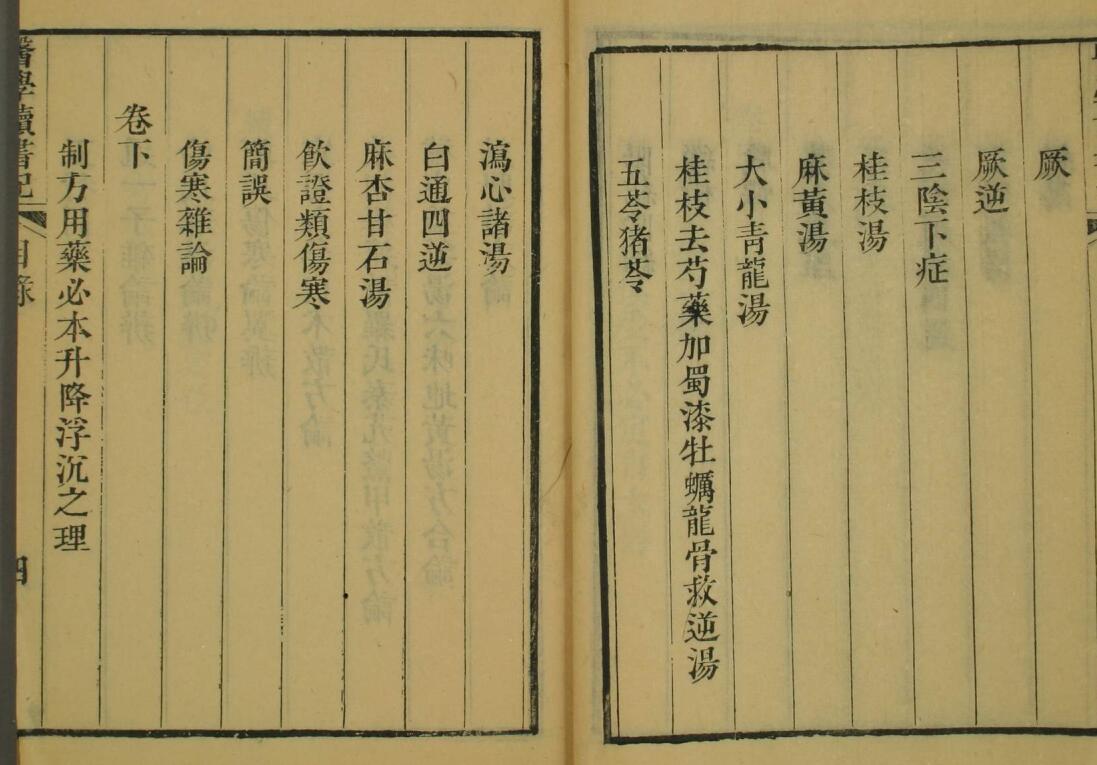 厥
厥逆
三陰下症
桂枝湯
麻黃湯
大小青龍湯
桂枝去芍藥加蜀漆牡蠣龍骨救逆湯
五苓猪苓
瀉心諸湯
白通四逆
麻杏甘石湯
飲證類傷寒
簡誤
傷寒雜論
卷下
制方用藥必本升降浮沉之理
醫學讀書記
目錄
四